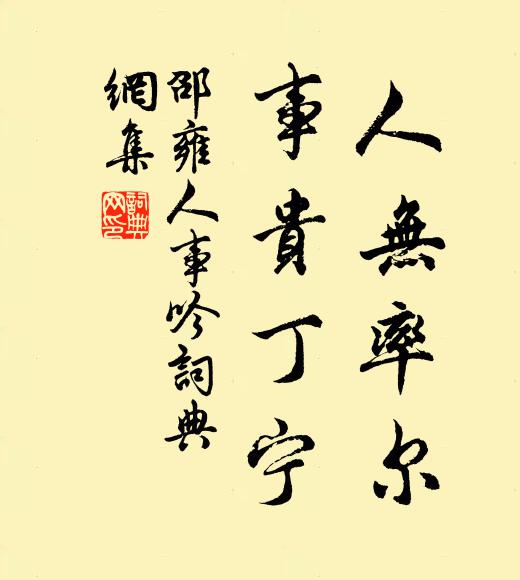 人無率尔
事貴丁宁
邵雍人事吟詞典
網集
詞典網印